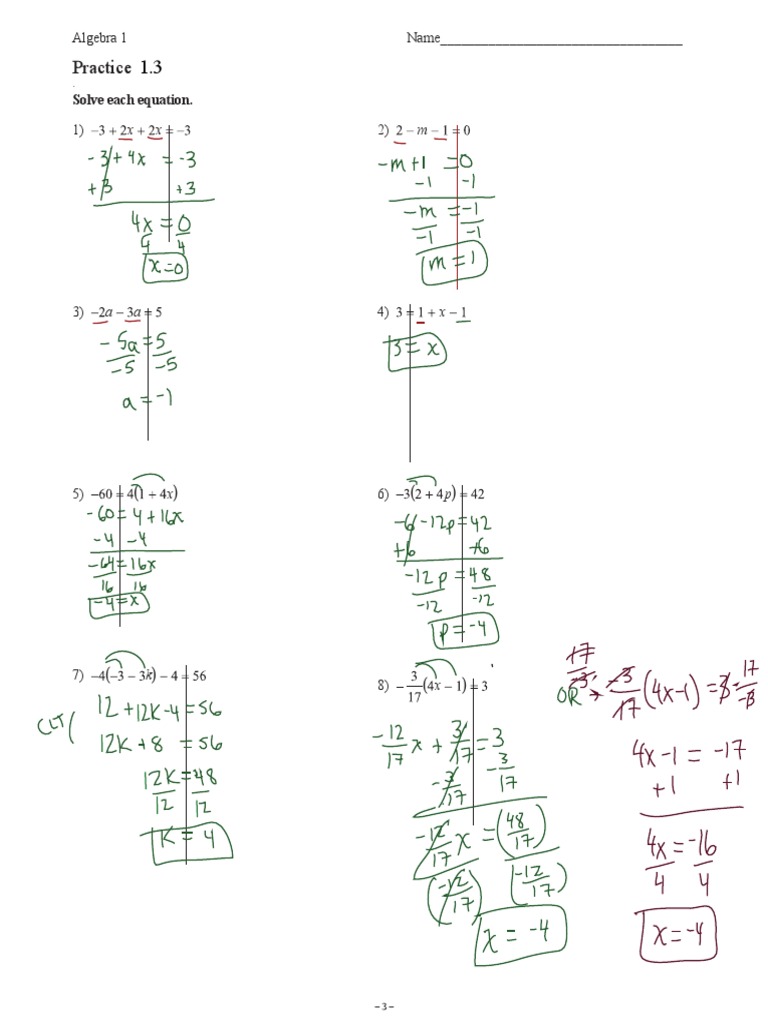 Algebra 1 Name___________________________________
Practice 1.3
.
Solve each equation.
1) −3 + 2x + 2x = −3
-3 + 4x = -3
+3 +3
4x = 0
4 4
x = 0
2) 2 − m − 1 = 0
-m + 1 = 0
-1 -1
-m = -1
-1 -1
m = 1
3) −2a − 3a = 5
-5a = 5
-5 -5
a = -1
4) 3 = 1 + x − 1
3 = x
5) −60 = 4(1 + 4x)
-60 = 4 + 16x
-4 -4
-64 = 16x
16 16
-4 = x
6) −3(2 + 4p) = 42
-6 -12p = 42
+6 +6
-12p = 48
-12 -12
p = -4
7) −4(−3 − 3k) − 4 = 56
12 + 12K - 4 = 56
CLT
12K + 8 = 56
12K = 48
12 12
K = 4
8) −3/17(4x − 1) = 3
-12/17 x + 3/17 = 3
-3/17 -3/17
-12/17 x = (48/17)
(-12/17) (-12/17)
x = -4
17/-3
OR → -3/17 (4x-1) = 3 · 17/-3
4x-1 = -17
+1 +1
4x = -16
4 4
x = -4
- 3 -